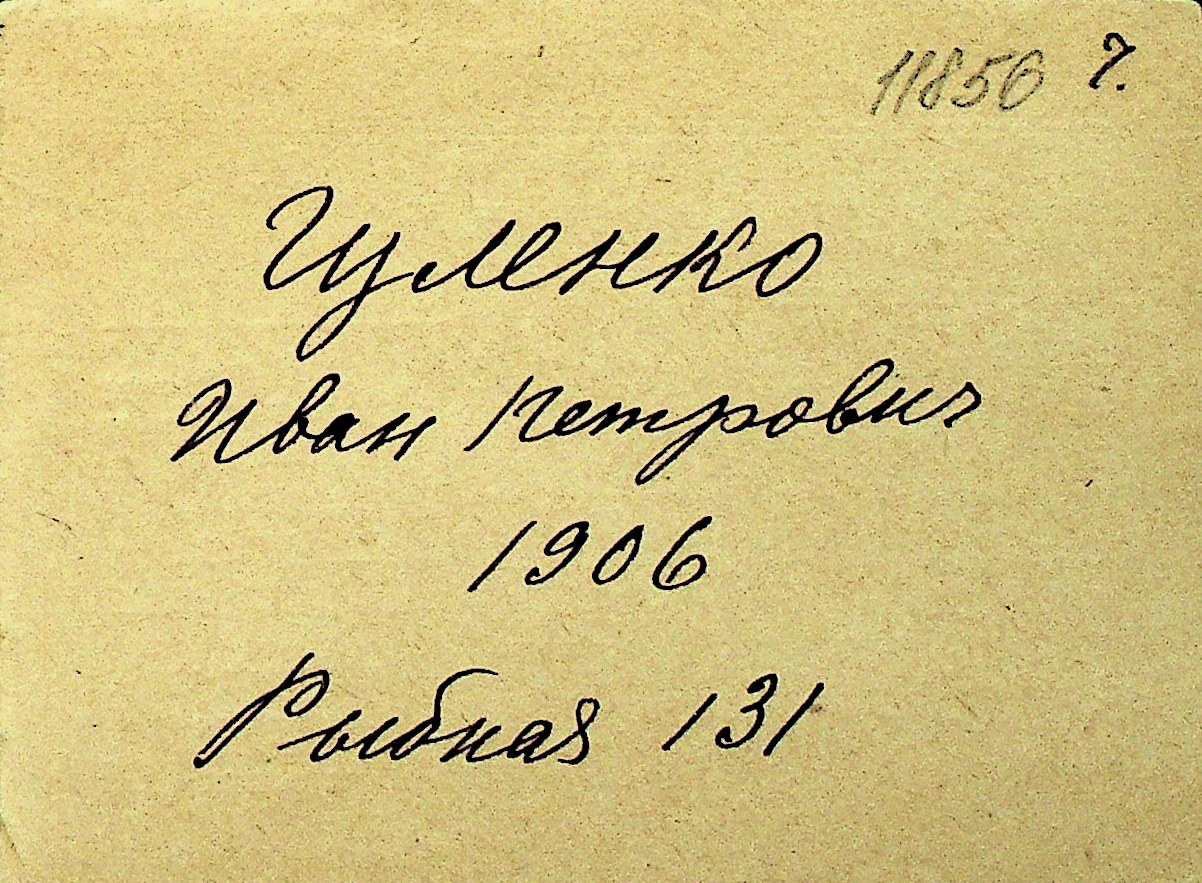 11856
Гуленко
Иван Петрович
1906
Рыбная 131